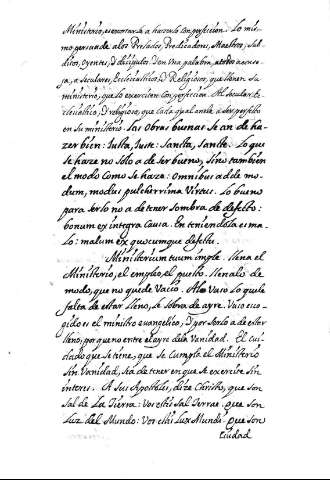 Ministerio, es exortarle a hazerlo con perfeccion. Lo mis-
mo persuade a los Prelados, Predicadores, Maestros, Sub-
ditos, oyentes, Discipulos. Con una palabra,
ja, a Seculares, Ecclesiasticos, D Religiosos, que llenen su
ministerio, que lo exerciten con perfeccion. Al secular, Ec-
clesiastico, D religioso, que cada qual anele a ser perfecto
en su ministerio. Las obras buenas se an de ha-
zer bien: Iusta, Iuste: Sancta, Sancte. Lo que
se haze no solo a de ser bueno, sino tambien
el modo como se haze: Omnibus adde mo-
dum, modus pulcherrima Virtus. Lo bueno
para serlo no a de tener sombra de defecto:
bonum ex integra causa. En teniendola es ma-
lo: malum ex quocumque defectu.
Ministerium tuum imple. llena el
Ministerio, el empleo, el puesto. llenalo de
modo, que no quede vacio. Al vaso lo que le
falta de estar lleno, le sobra de ayre. Vaso esco-
gido es el ministro evangelico, D por serlo a de estar
lleno, porque no entre el ayre de la Vanidad. El cui-
dado que se tiene, que se cumpla el Ministerio
sin Vanidad, sea de tener en que se exercite sin
interes. A sus Apostoles, dize Christo, que son
Sal de La Tierra: Vos estis Sal Terrae. que son
Luz del Mundo: Vos estis Lux Mundi. que son
Ciudad